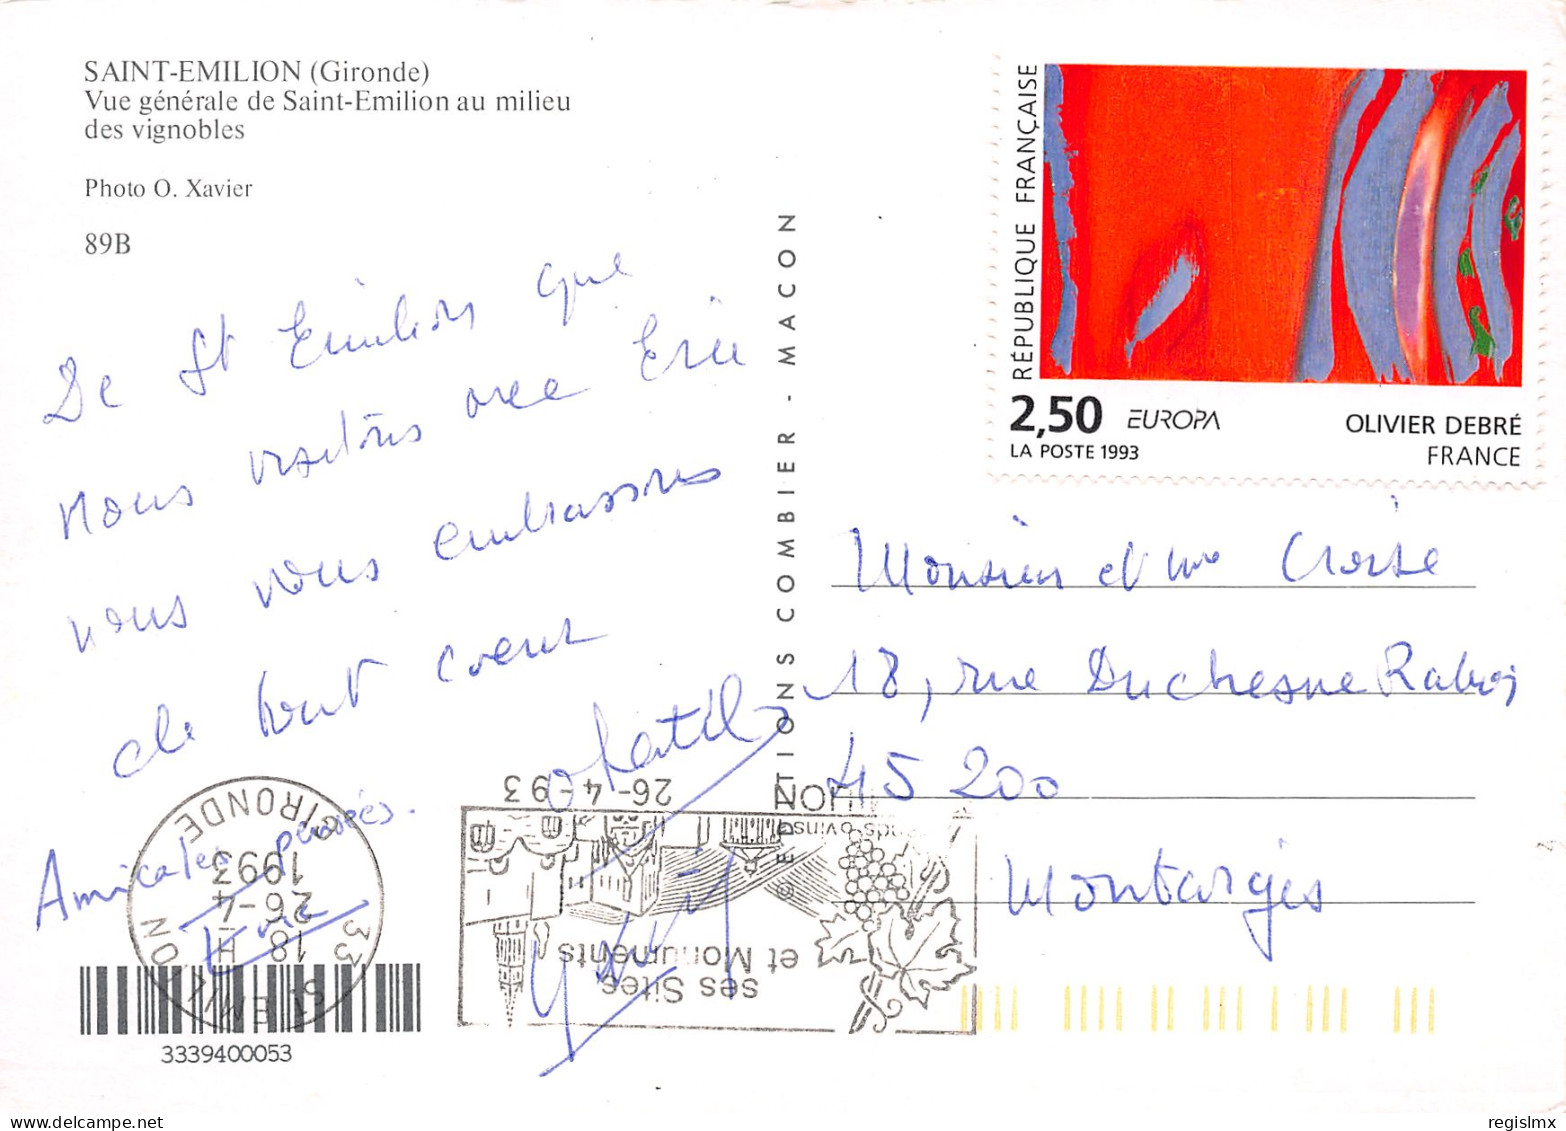 SAINT-EMILION (Gironde)
Vue générale de Saint-Emilion au milieu
des vignobles
Photo O. Xavier
89B
De St Emilion que
nous visitons avec Eric
nous vous embrassons
de tout coeur
Amicales pensées.
Eric
© EDITIONS COMBIER - MACON
RÉPUBLIQUE FRANÇAISE
2,50 EUROPA
LA POSTE 1993
OLIVIER DEBRÉ
FRANCE
Monsieur et Mme Croise
18, rue Duchesne Rabier
45 200
Montargis
33 ST EMILION
GIRONDE
18 H
26-4
1993
26-4-93
ses Sites
et Monuments
3339400053
regislmx